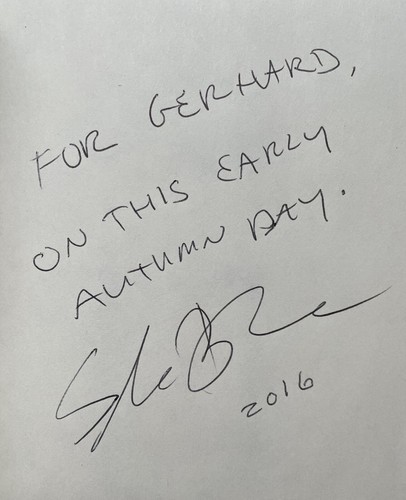 FOR GERHARD,
ON THIS EARLY
AUTUMN DAY.
2016